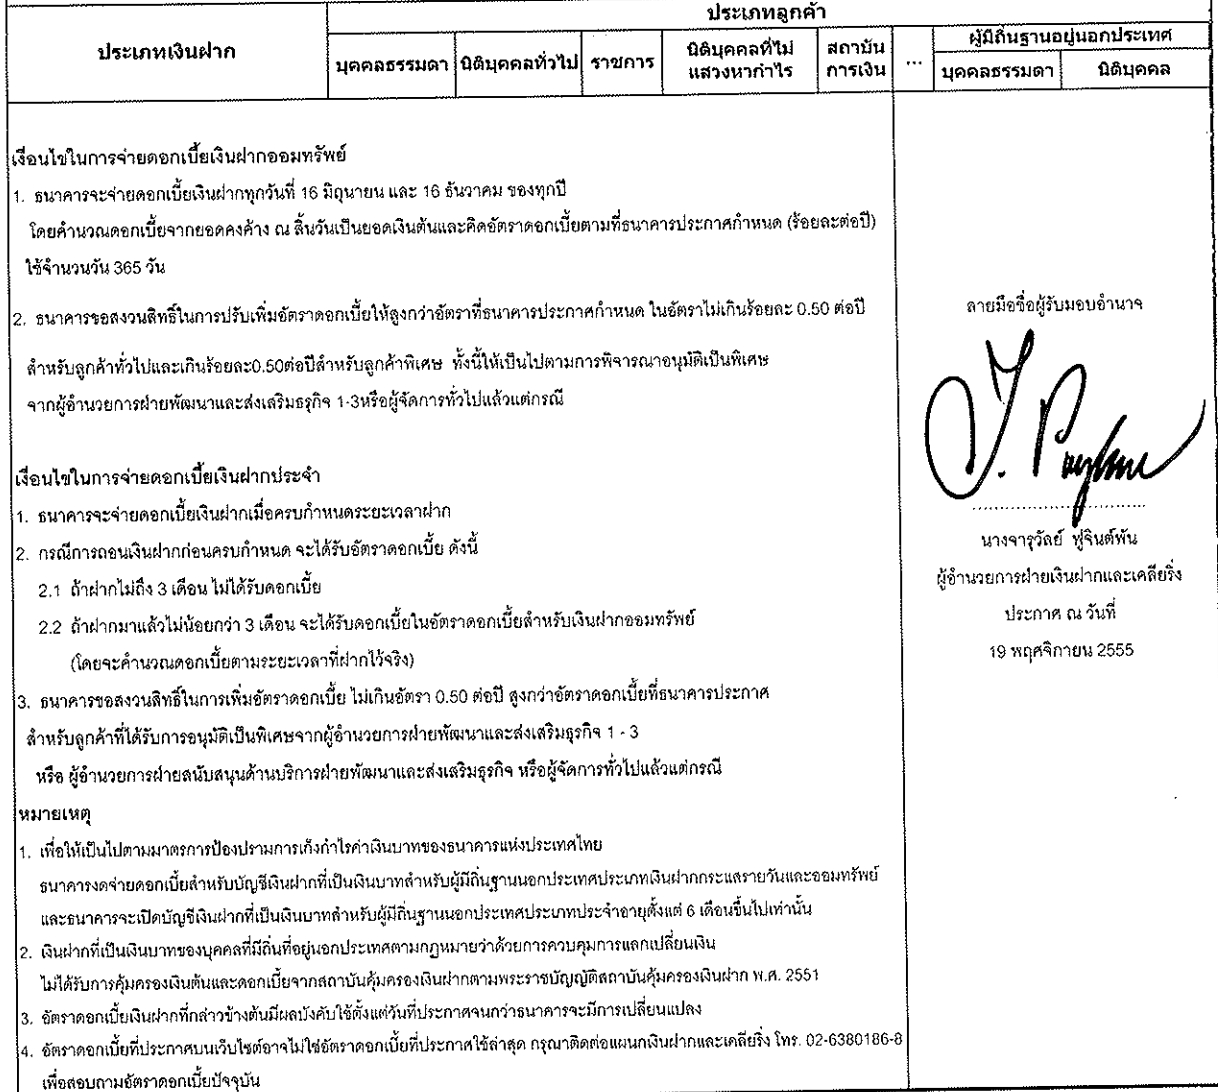 ประเภทลูกค้า
ประเภทเงินฝาก
ผู้มีถิ่นฐานอยู่นอกประเทศ
บุคคลธรรมดา นิติบุคคลทั่วไป ราชการ
นิติบุคคลที่ไม่
แสวงหากำไร
สถาบัน
การเงิน
...
บุคคลธรรมดา นิติบุคคล
เงื่อนไขในการจ่ายดอกเบี้ยเงินฝากออมทรัพย์
1. ธนาคารจะจ่ายดอกเบี้ยเงินฝากทุกวันที่ 16 มิถุนายน และ 16 ธันวาคม ของทุกปี
โดยคำนวณดอกเบี้ยจากยอดคงค้าง ณ สิ้นวันเป็นยอดเงินต้นและคิดอัตราดอกเบี้ยตามที่ธนาคารประกาศกำหนด (ร้อยละต่อปี)
ใช้จำนวนวัน 365 วัน
2. ธนาคารขอสงวนสิทธิ์ในการปรับเพิ่มอัตราดอกเบี้ยให้สูงกว่าอัตราที่ธนาคารประกาศกำหนด ในอัตราไม่เกินร้อยละ 0.50 ต่อปี
สำหรับลูกค้าทั่วไปและเกินร้อยละ0.50ต่อปีสำหรับลูกค้าพิเศษ ทั้งนี้ให้เป็นไปตามการพิจารณาอนุมัติเป็นพิเศษ
จากผู้อำนวยการฝ่ายพัฒนาและส่งเสริมธุรกิจ 1-3หรือผู้จัดการทั่วไปแล้วแต่กรณี
เงื่อนไขในการจ่ายดอกเบี้ยเงินฝากประจำ
1. ธนาคารจะจ่ายดอกเบี้ยเงินฝากเมื่อครบกำหนดระยะเวลาฝาก
2. กรณีการถอนเงินฝากก่อนครบกำหนด จะได้รับอัตราดอกเบี้ย ดังนี้
2.1 ถ้าฝากไม่ถึง 3 เดือน ไม่ได้รับดอกเบี้ย
2.2 ถ้าฝากมาแล้วไม่น้อยกว่า 3 เดือน จะได้รับดอกเบี้ยในอัตราดอกเบี้ยสำหรับเงินฝากออมทรัพย์
(โดยจะคำนวณดอกเบี้ยตามระยะเวลาที่ฝากไว้จริง)
3. ธนาคารขอสงวนสิทธิ์ในการเพิ่มอัตราดอกเบี้ย ไม่เกินอัตรา 0.50 ต่อปี สูงกว่าอัตราดอกเบี้ยที่ธนาคารประกาศ
สำหรับลูกค้าที่ได้รับการอนุมัติเป็นพิเศษจากผู้อำนวยการฝ่ายพัฒนาและส่งเสริมธุรกิจ 1 - 3
หรือ ผู้อำนวยการฝ่ายสนับสนุนด้านบริการฝ่ายพัฒนาและส่งเสริมธุรกิจ หรือผู้จัดการทั่วไปแล้วแต่กรณี
หมายเหตุ
1. เพื่อให้เป็นไปตามมาตรการป้องปรามการเก็งกำไรค่าเงินบาทของธนาคารแห่งประเทศไทย
ธนาคารงดจ่ายดอกเบี้ยสำหรับบัญชีเงินฝากที่เป็นเงินบาทสำหรับผู้มีถิ่นฐานนอกประเทศประเภทเงินฝากกระแสรายวันและออมทรัพย์
และธนาคารจะเปิดบัญชีเงินฝากที่เป็นเงินบาทสำหรับผู้มีถิ่นฐานนอกประเทศประเภทประจำอายุตั้งแต่ 6 เดือนขึ้นไปเท่านั้น
2. เงินฝากที่เป็นเงินบาทของบุคคลที่มีถิ่นที่อยู่นอกประเทศตามกฎหมายว่าด้วยการควบคุมการแลกเปลี่ยนเงิน
ไม่ได้รับการคุ้มครองเงินต้นและดอกเบี้ยจากสถาบันคุ้มครองเงินฝากตามพระราชบัญญัติสถาบันคุ้มครองเงินฝาก พ.ศ. 2551
3. อัตราดอกเบี้ยเงินฝากที่กล่าวข้างต้นมีผลบังคับใช้ตั้งแต่วันที่ประกาศจนกว่าธนาคารจะมีการเปลี่ยนแปลง
4. อัตราดอกเบี้ยที่ประกาศบนเว็บไซต์อาจไม่ใช่อัตราดอกเบี้ยที่ประกาศใช้ล่าสุด กรุณาติดต่อแผนกเงินฝากและเคลียริ่ง โทร. 02-6380186-8
เพื่อสอบถามอัตราดอกเบี้ยปัจจุบัน
ลายมือชื่อผู้รับมอบอำนาจ
นางจารุวัลย์ ฟูจินต์พัน
ผู้อำนวยการฝ่ายเงินฝากและเคลียริ่ง
ประกาศ ณ วันที่
19 พฤศจิกายน 2555